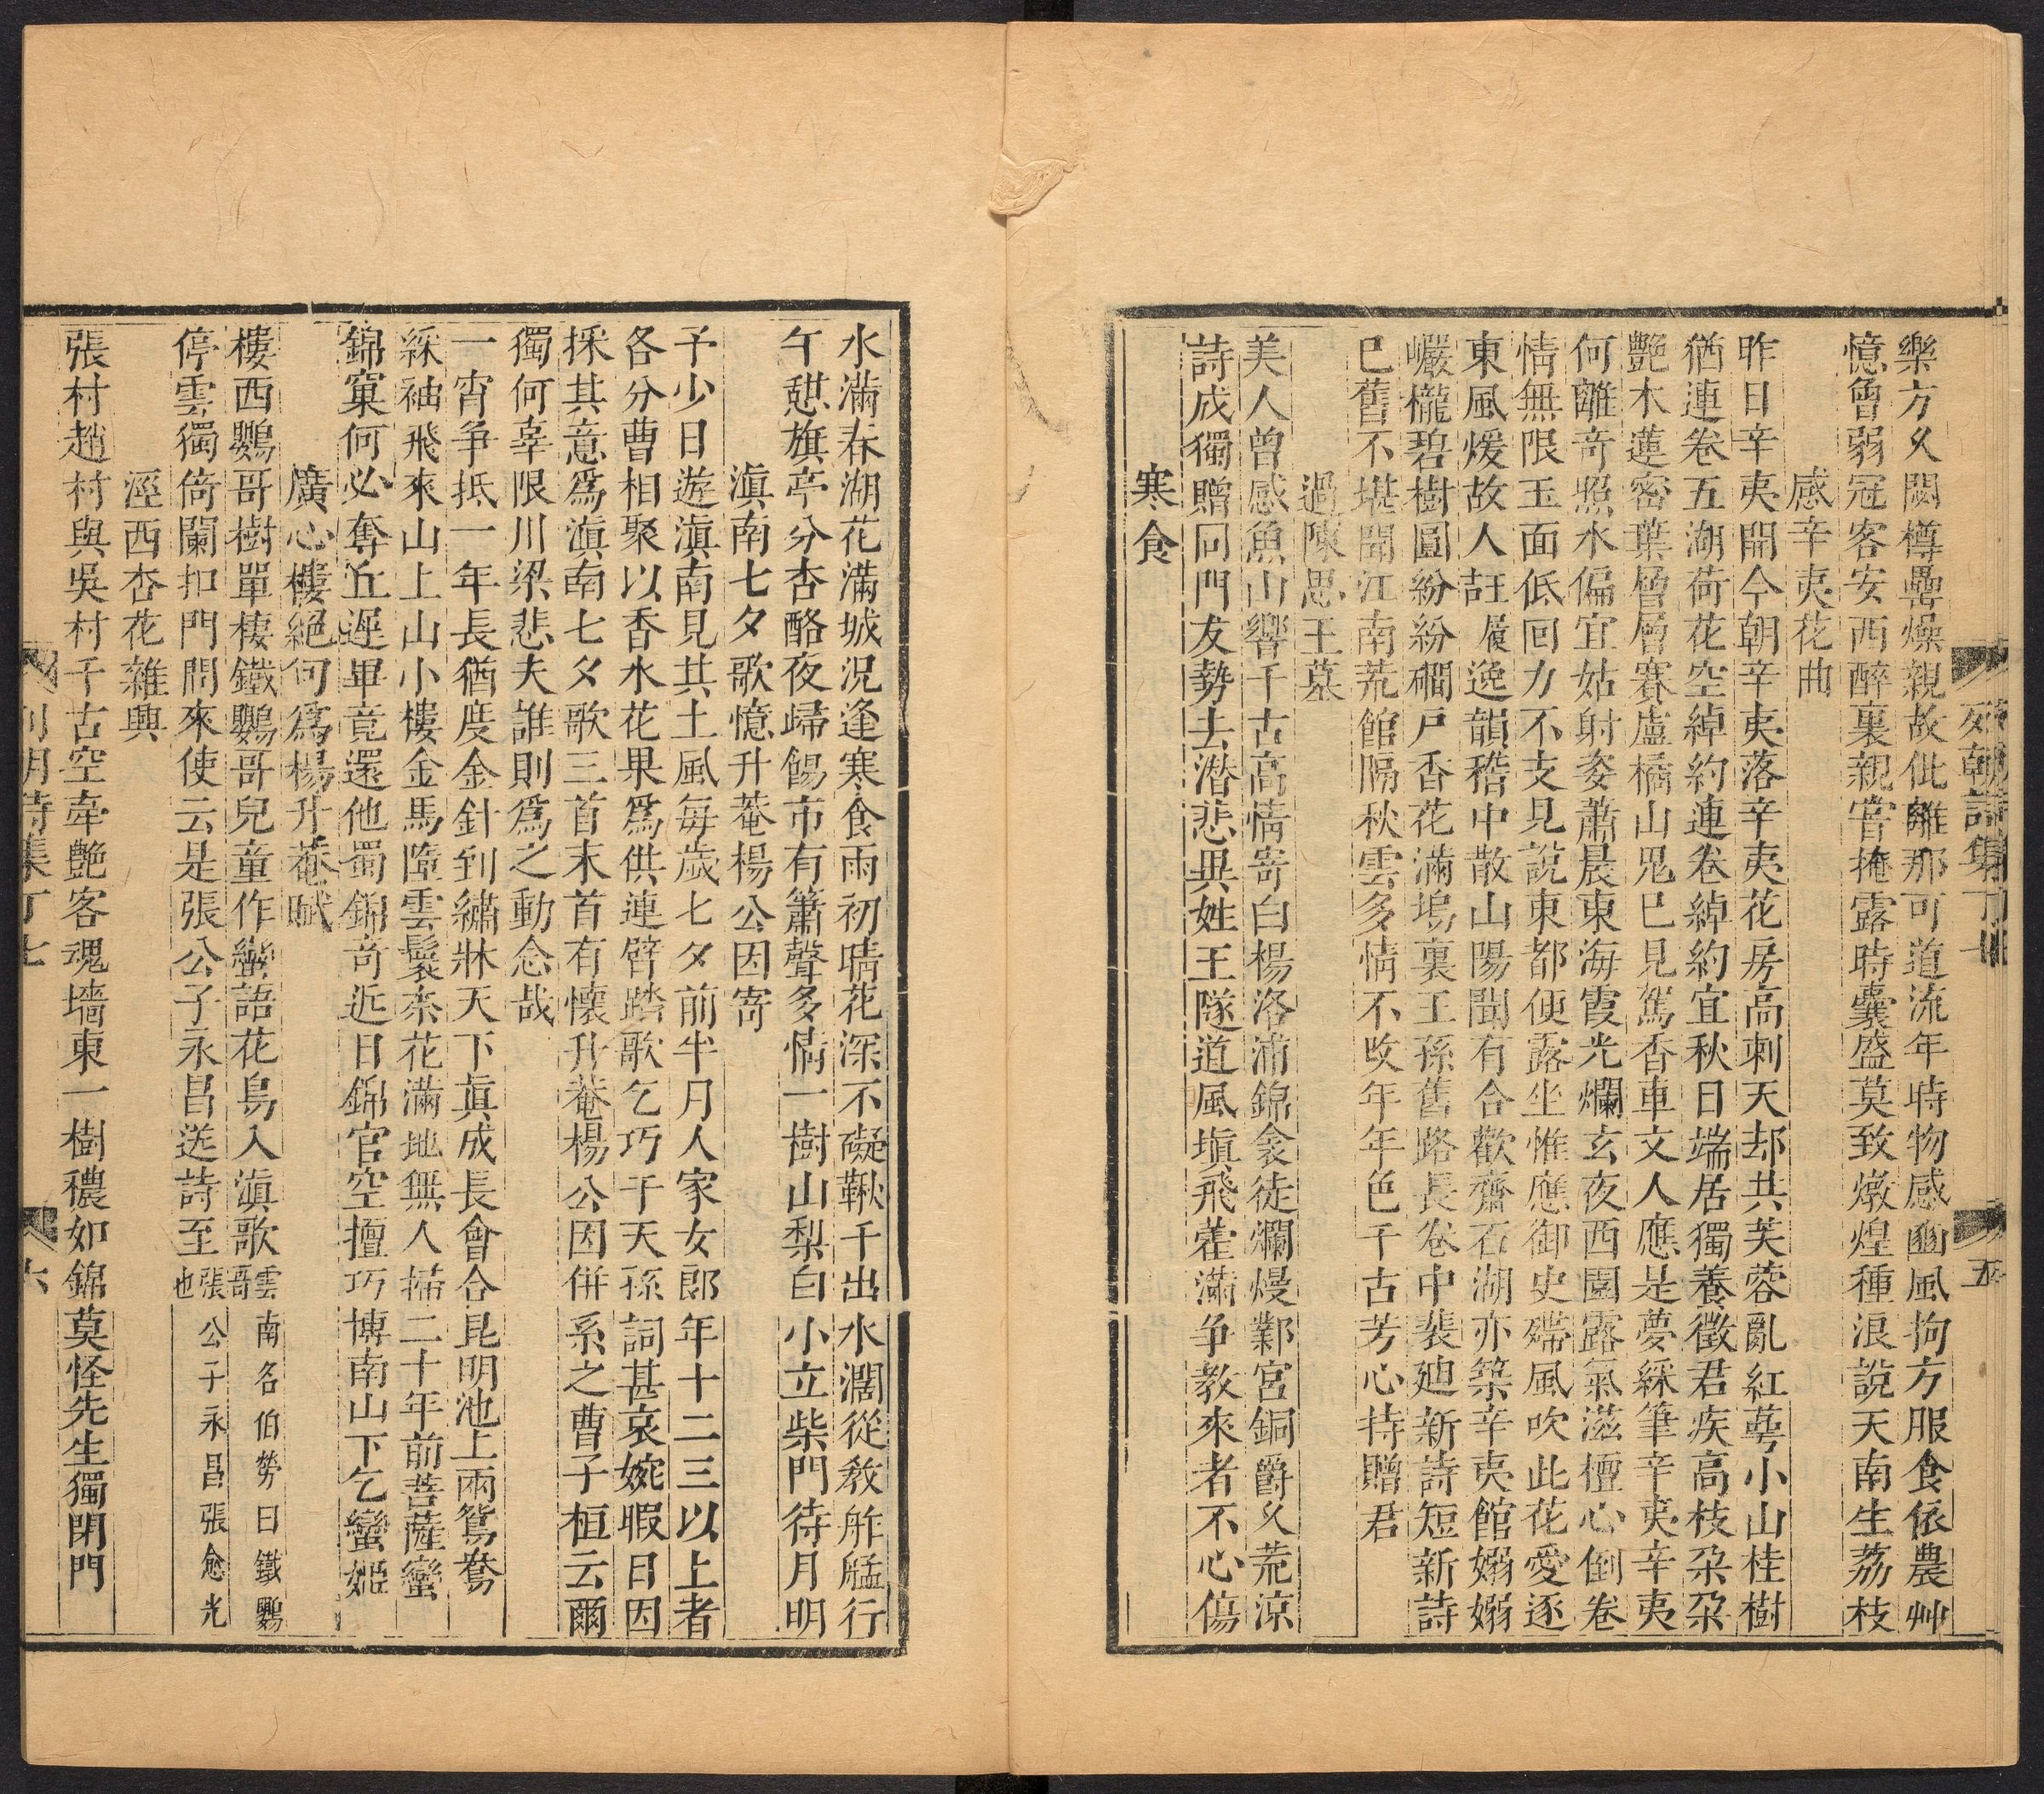 樂方久闕樽罍燥親故仳離那可道流年時物感豳風拘方服食依農艸
憶曾弱冠客安西醉裏親嘗掩露時囊盛莫致燉煌種浪說天南生荔枝
感辛夷花曲
昨日辛夷開今朝辛夷落辛夷花房高刺天却共芙蓉亂紅蕚小山桂樹
猶連卷五湖荷花空綽約連卷綽約宜秋日端居獨養徵君疾高枝朶朶
艷木蓮密葉層層賽盧橘山鬼已見駕香車文人應是夢綵筆辛夷辛夷
何離竒照水偏宜姑射姿蕭晨東海霞光爛玄夜西園露氣滋檀心倒卷
情無限玉面低回力不支見說東都便露坐惟應御史㡠風吹此花愛逐
東風煖故人訏履逸韻稽中散山陽聞有合歡齋石湖亦築辛夷館嫋嫋
巗櫳碧樹圓紛紛磵戶香花滿塢裏王孫舊路長卷中裴廸新詩短新詩
已舊不堪聞江南荒館隔秋雲多情不改年年色千古芳心持贈君
過陳思王墓
美人曾感魚山響千古高情寄白楊洛浦錦衾徒爛熳鄴宮銅爵久荒涼
詩成獨贈同門友勢去潜悲異姓王隧道風塡飛藿滿争教來者不心傷
寒食
水滿春湖花滿城況逢寒食雨初晴花深不礙鞦千出水濶從敎舴艋行
午憇旗亭分杏酪夜歸餳市有簫聲多情一樹山梨白小立柴門待月明
滇南七夕歌憶升菴楊公因寄
予少日遊滇南見其土風每歲七夕前半月人家女郎年十二三以上者
各分曹相聚以香水花果爲供連臂踏歌乞巧于天孫詞甚哀婉暇日因
採其意爲滇南七夕歌三首末首有懷升菴楊公因併系之曹子桓云爾
獨何辜限川梁悲夫誰則爲之動念哉
一宵争抵一年長猶度金針到繡牀天下真成長會合昆明池上兩鴛鴦
綵袖飛來山上山小樓金馬隨雲鬟柰花滿地無人掃二十年前菩薩蠻
錦窠何必奪丘遲畢竟還他蜀錦竒近日錦官空擅巧博南山下乞蠻姬
廣心樓絕句爲楊升菴賦
樓西鸚哥樹單棲鐵鸚哥兒童作蠻語花鳥入滇歌雲南名伯勞曰鐵鸚哥
停雲獨倚闌扣門問來使云是張公子永昌送詩至張公子永昌張愈光也
溼西杏花雜興
張村趙村與吳村千古空牽艷客魂墻東一樹穠如錦莫怪先生獨閉門